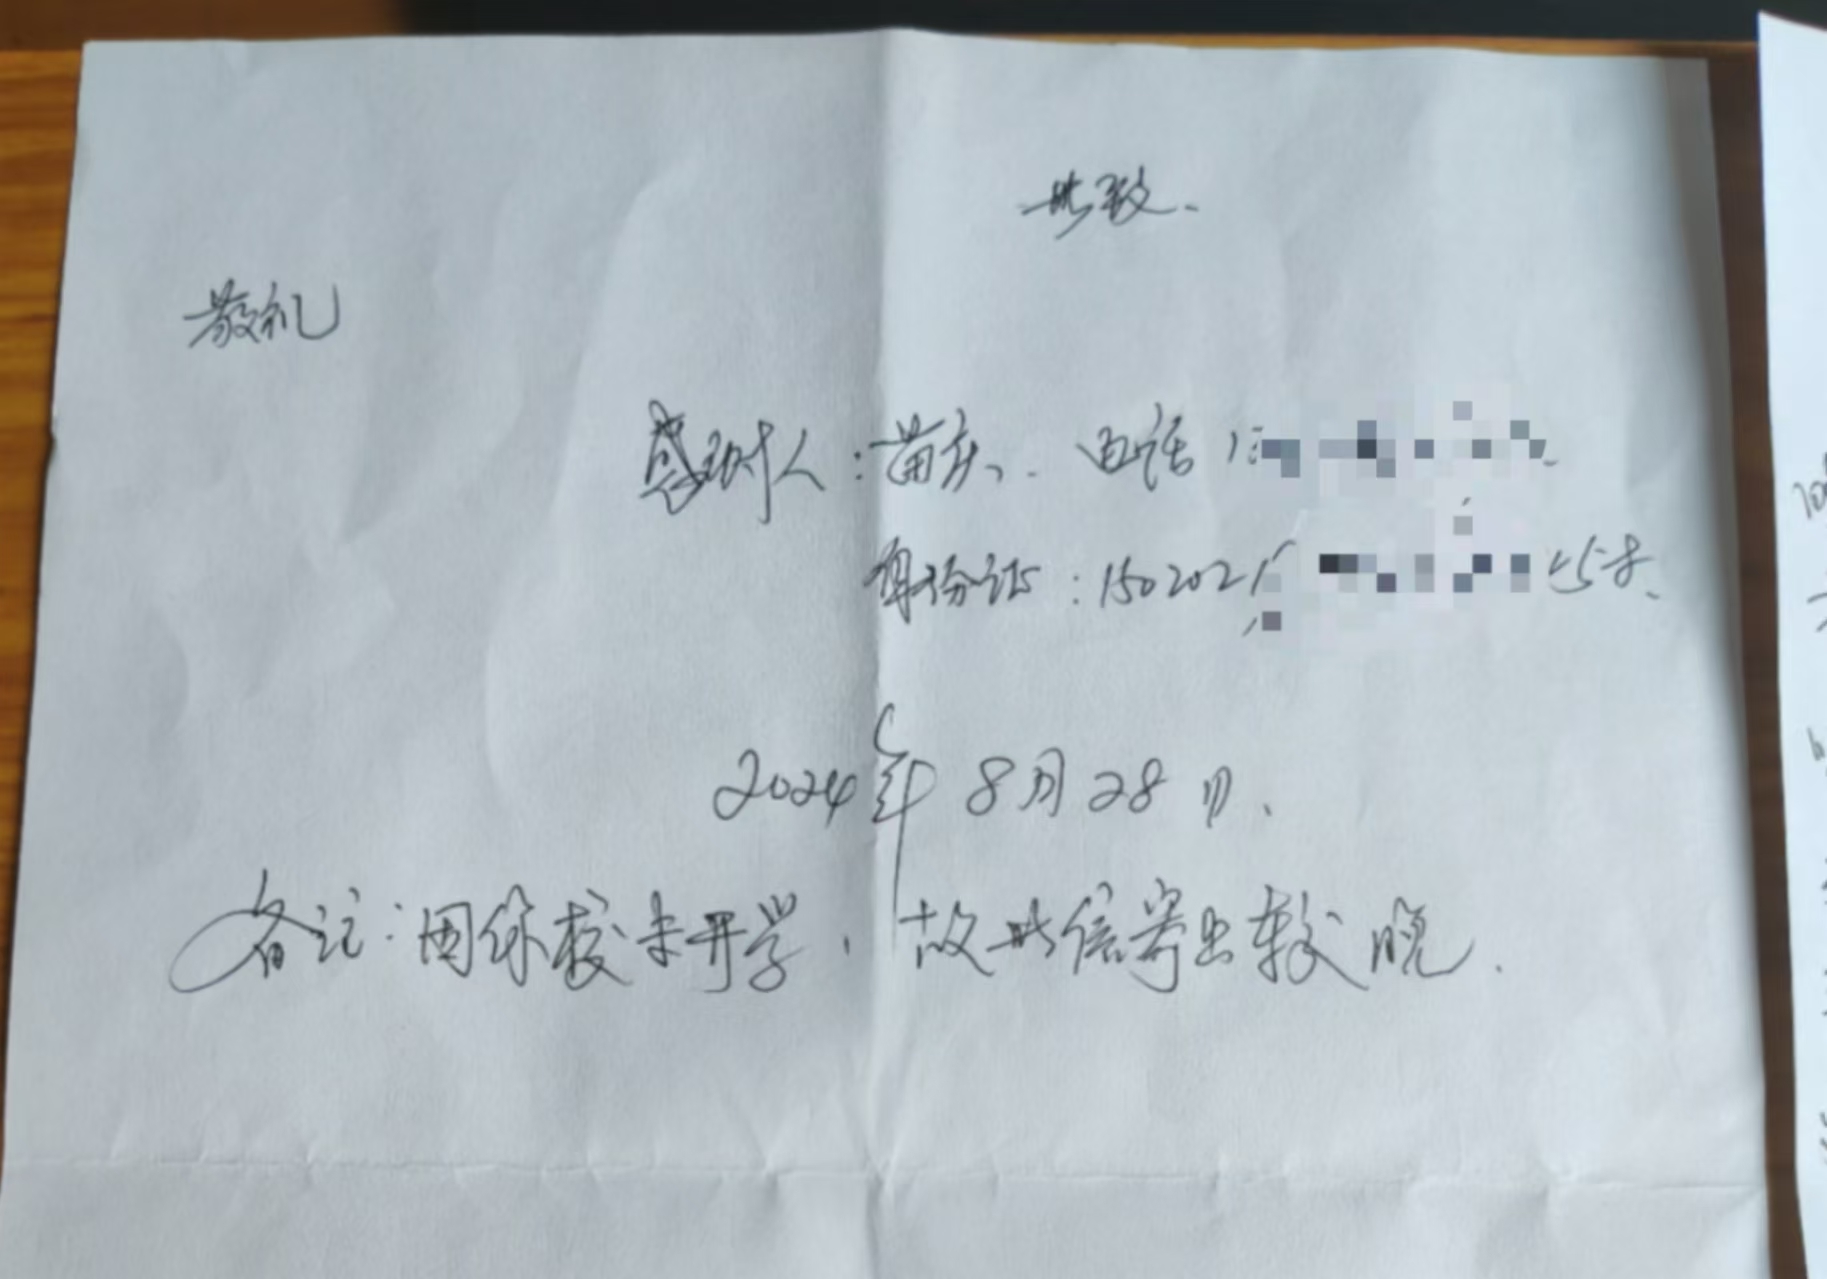 此致.
敬礼
感谢人：苗庆、. 电话
身份证：150202
2024年8月28日.
备注：因你校未开学，故此信寄出较晚.